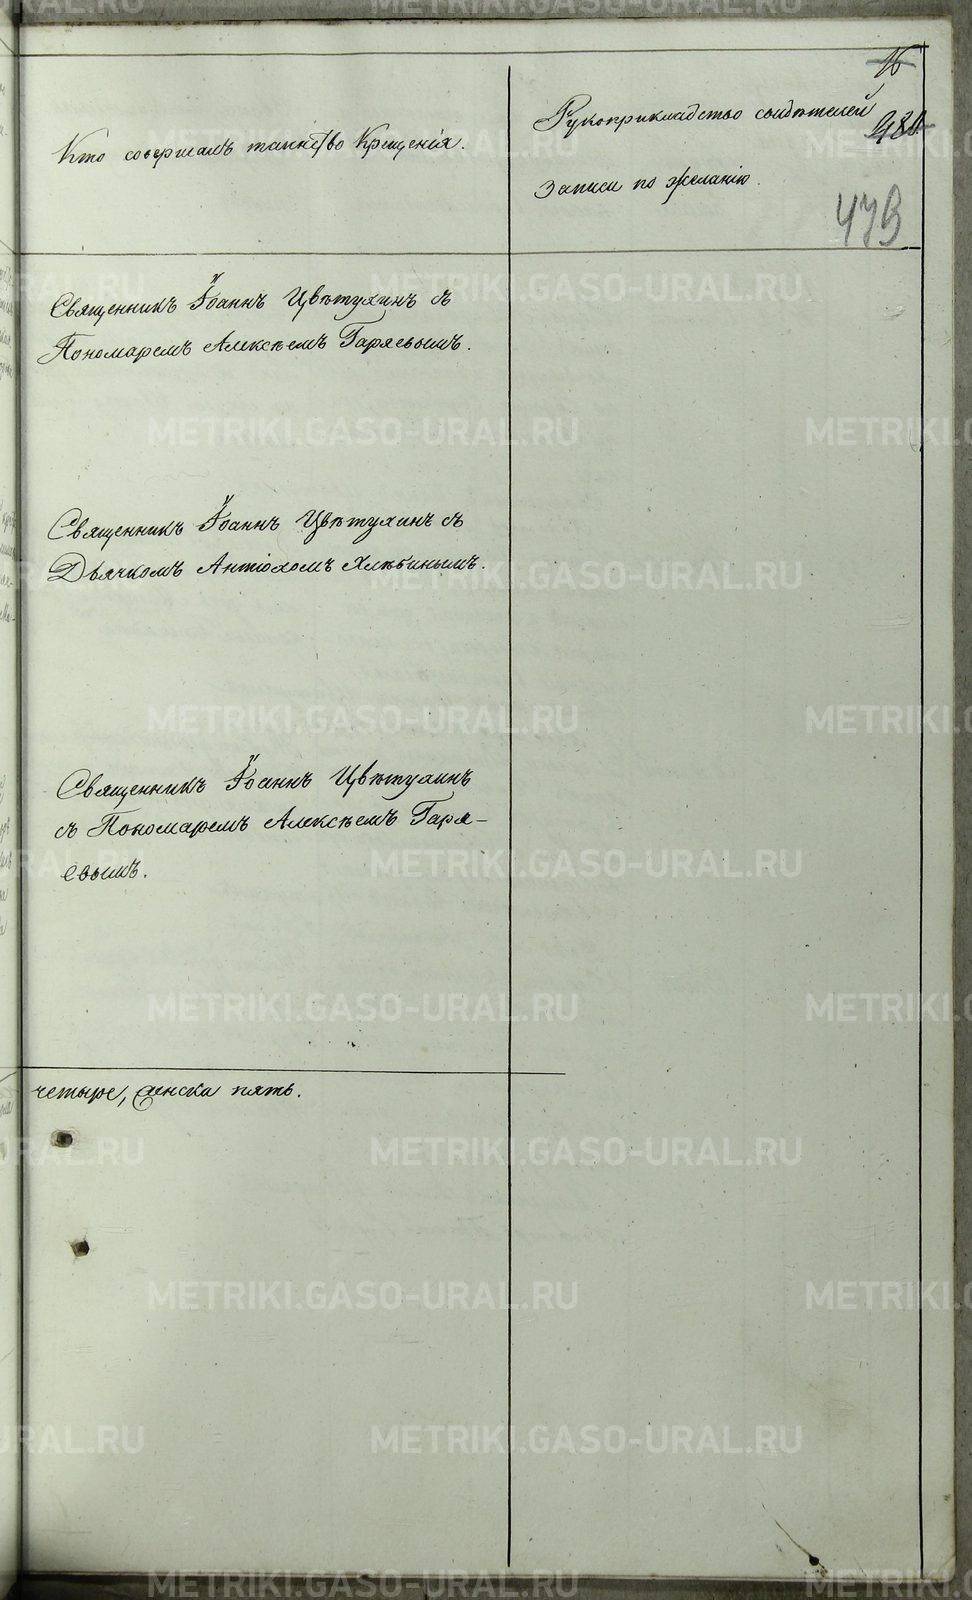 16
Кто совершалъ таинство Крещенія.
Рукоприкладство свидѣтелей
записи по желанію.
479
Священникъ Іоаннъ Цвѣтухинъ съ
Пономаремъ Алексѣемъ Гаряевымъ.
Священникъ Іоаннъ Цвѣтухинъ съ
Дьячкомъ Антіохомъ Хлѣбинымъ.
Священникъ Іоаннъ Цвѣтухинъ
съ Пономаремъ Алексѣемъ Гаря-
евымъ.
четыре, женска пять.
METRIKI.GASO-URAL.RU